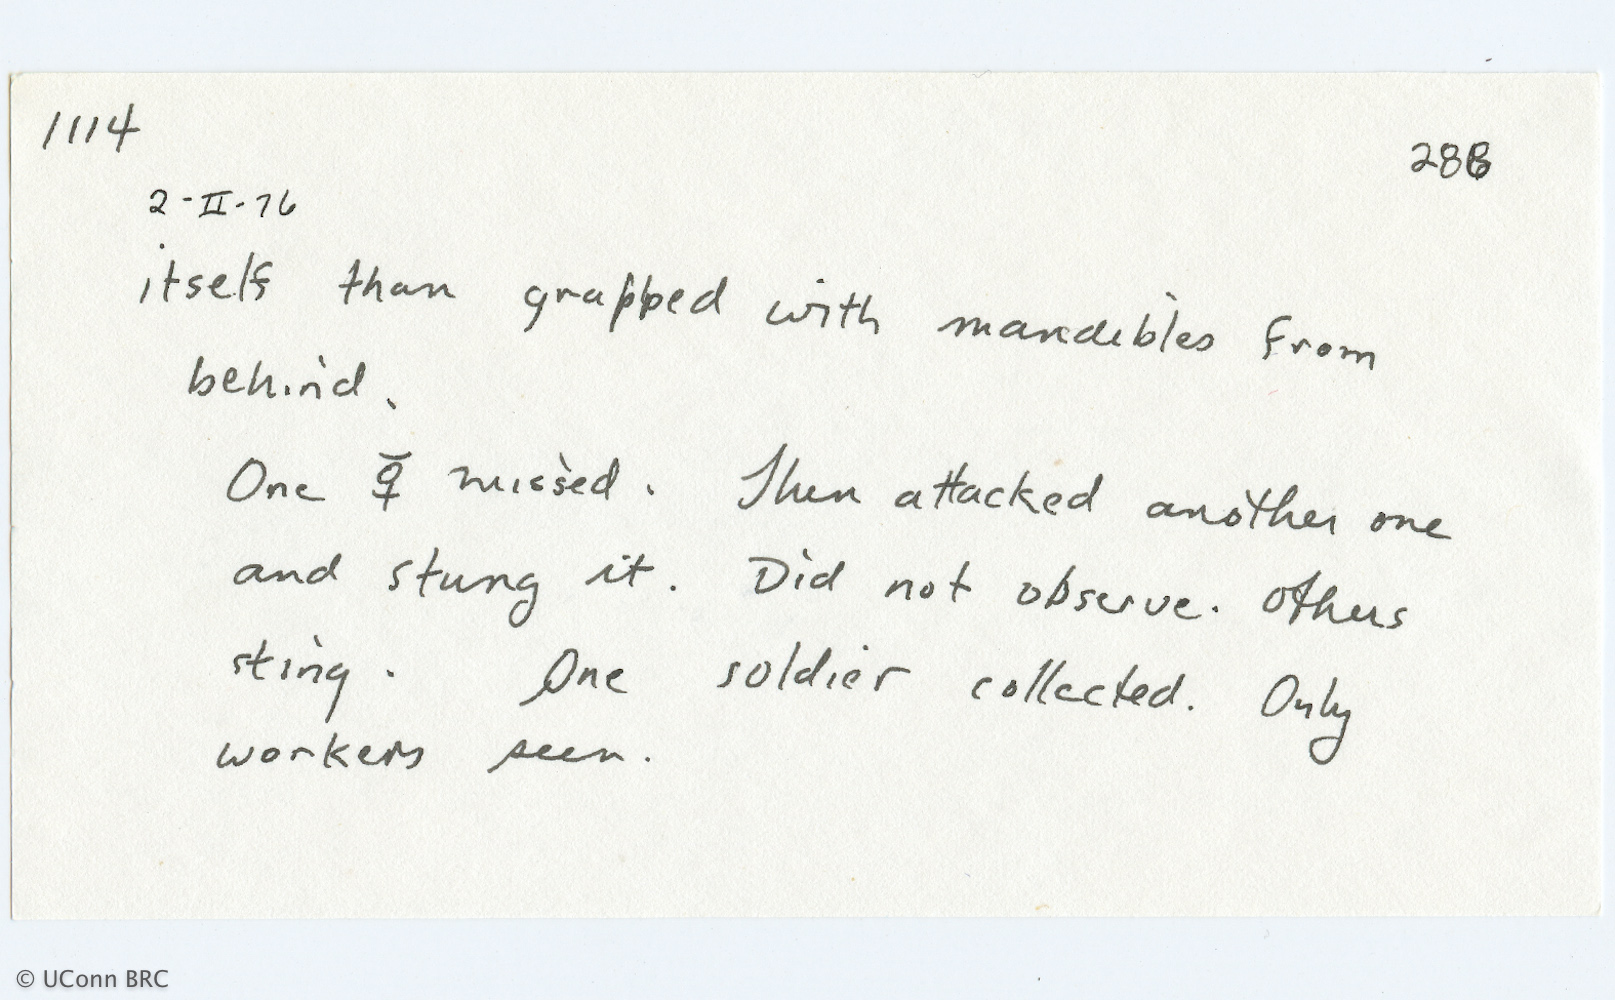 1114
288
2-II-76
itself than grapped with mandibles from
behind.
One ☿ missed. Then attacked another one
and stung it. Did not observe. others
sting. One soldier collected. Only
workers seen.
© UConn BRC